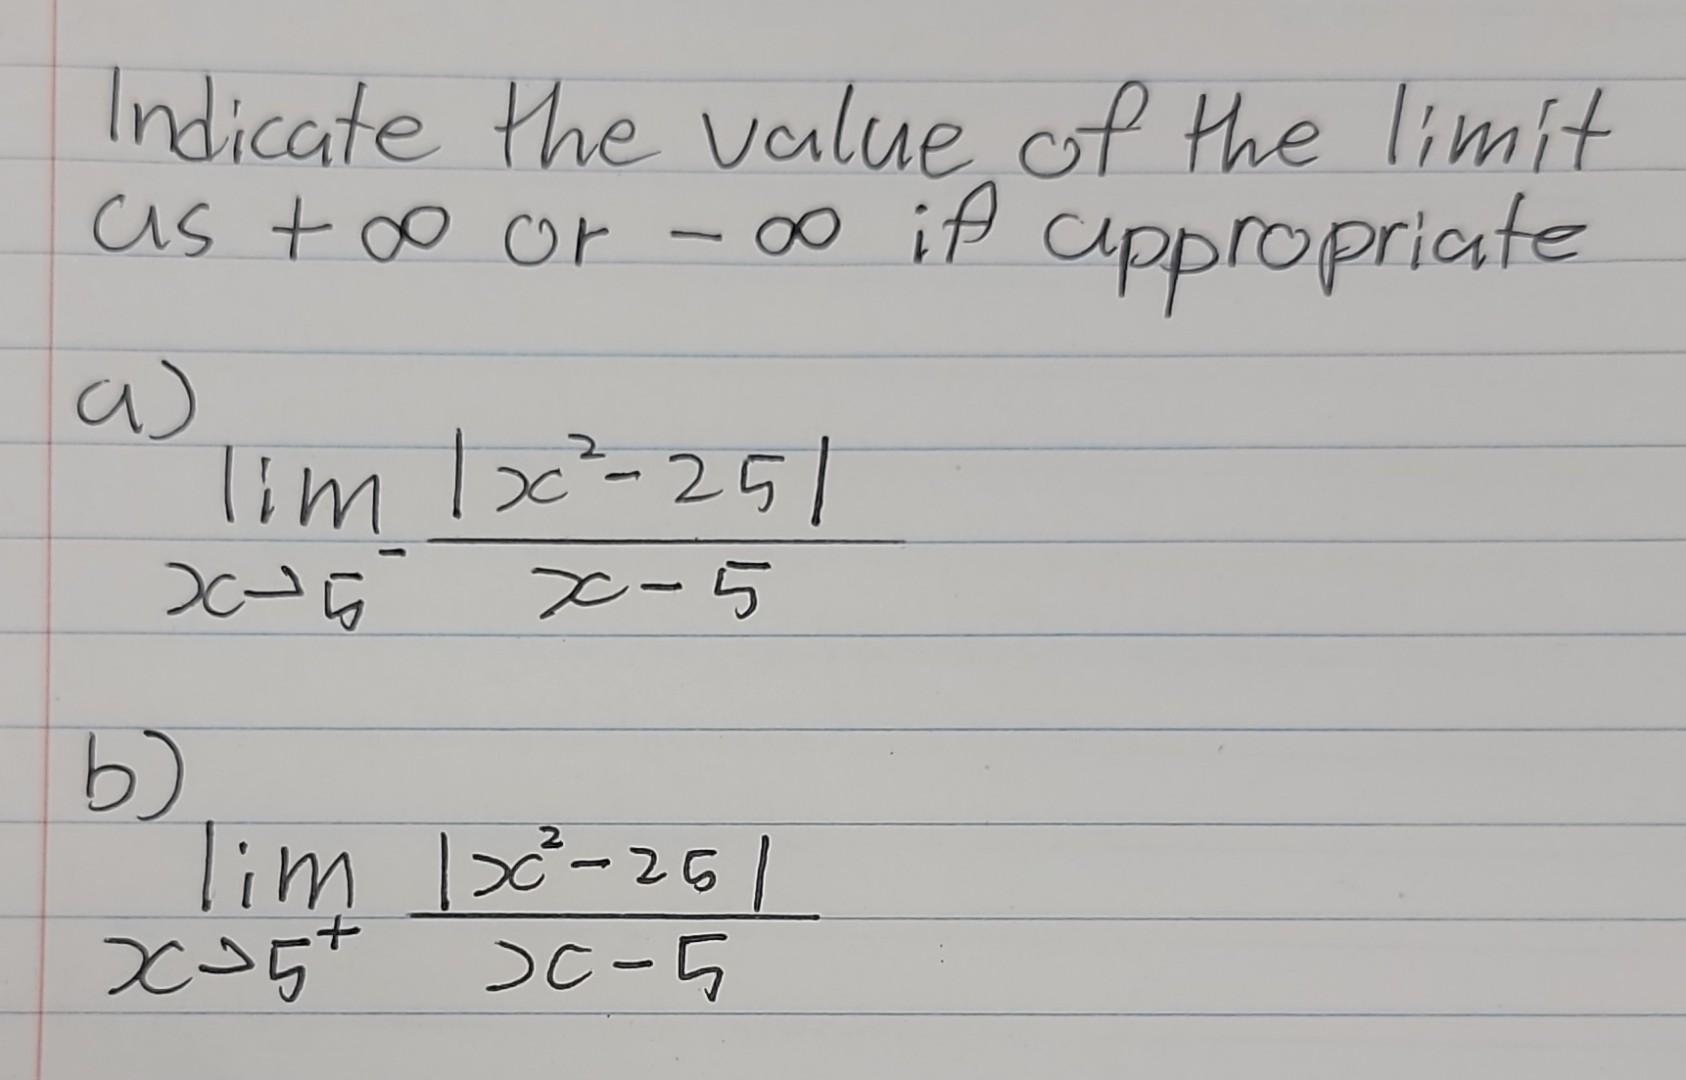 Indicate the value of the limit
as +∞ or -∞ if appropriate
a)
lim |x²-25|
x→5⁻ x-5
b)
lim |x²-25|
x→5⁺ x-5